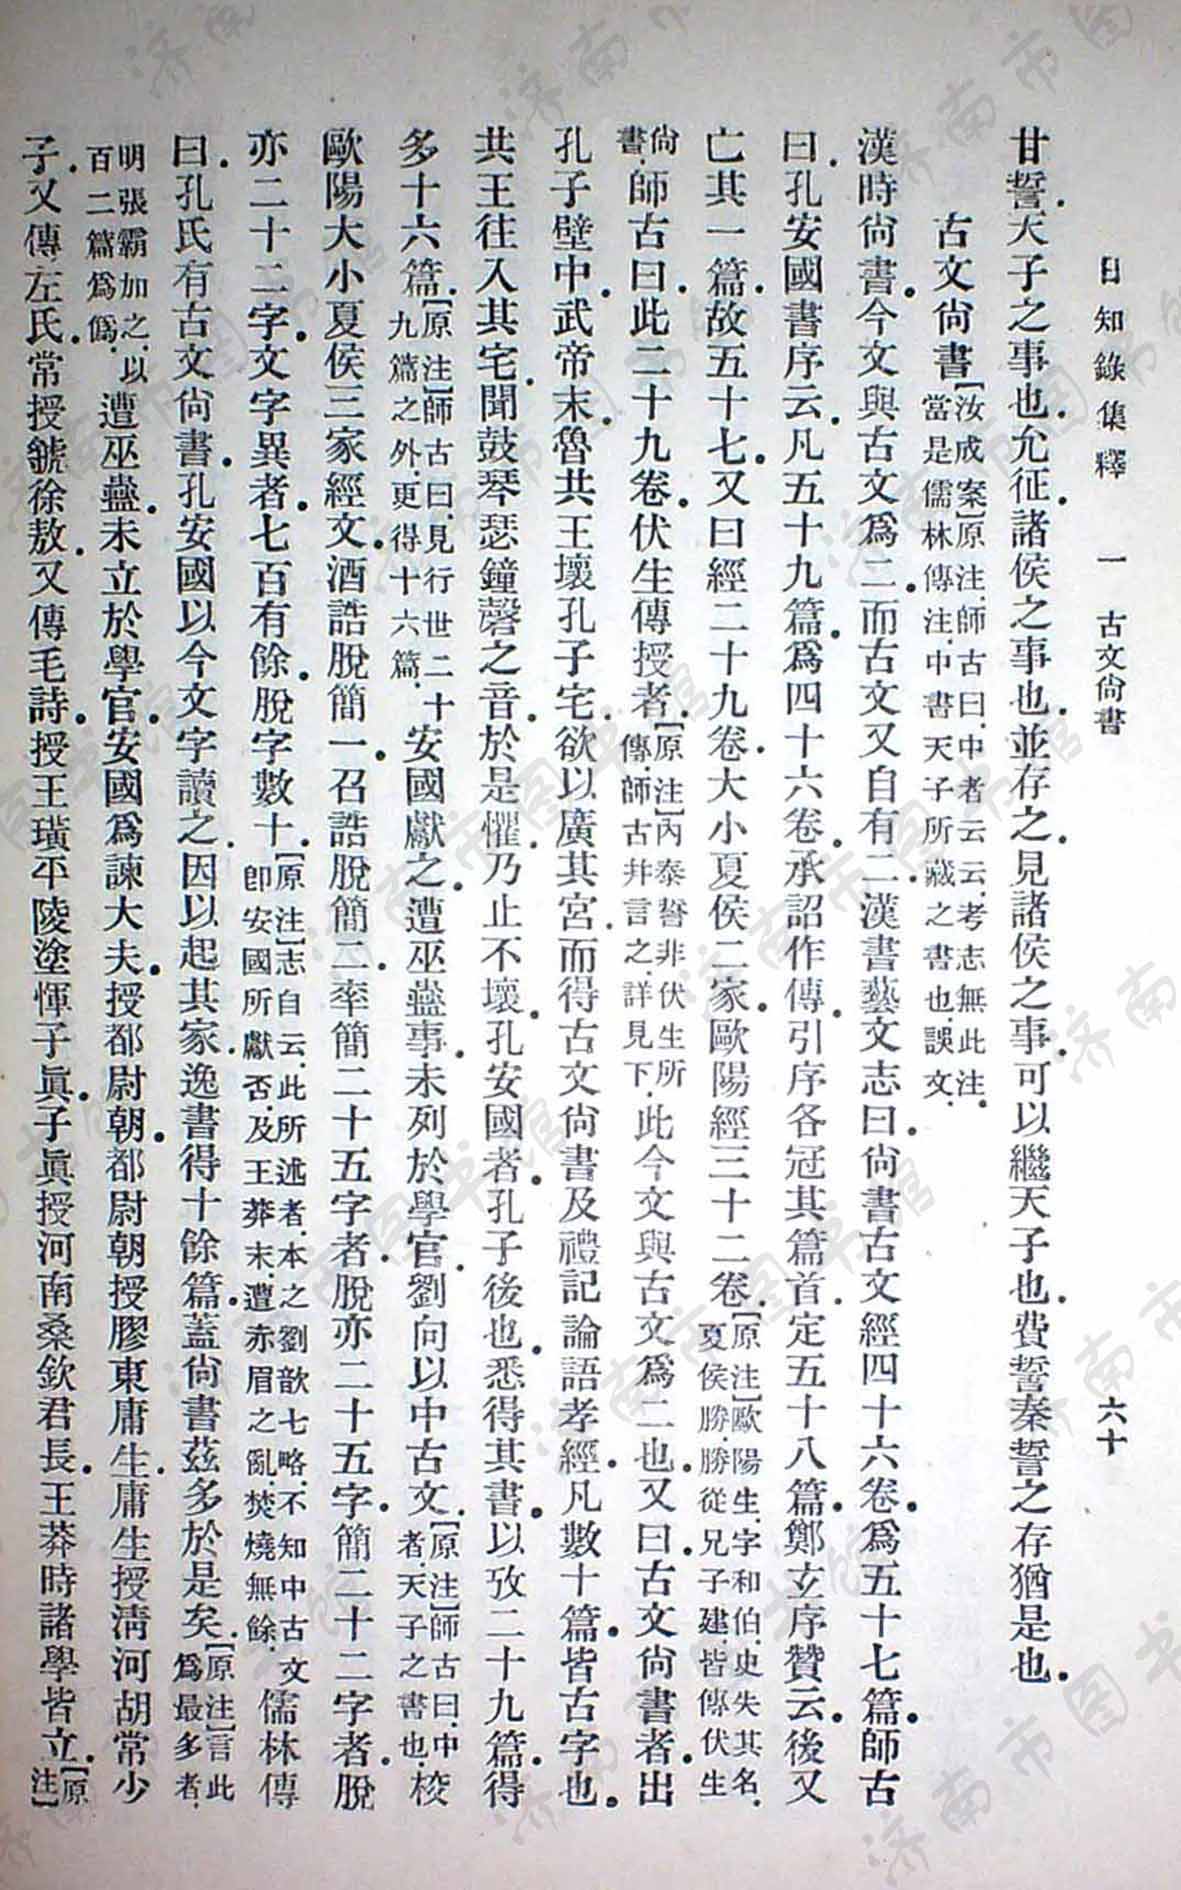 日知錄集釋　一　古文尙書　六十
甘誓.天子之事也.允征.諸侯之事也.並存之.見諸侯之事.可以繼天子也.費誓秦誓之存猶是也.
古文尙書【汝成案】原注.師古曰.中者云云.考志無此注.當是儒林傳注.中書天子所藏之書也.誤文.
漢時尙書.今文與古文爲二.而古文又自有二.漢書藝文志曰.尙書古文經四十六卷.爲五十七篇.師古
曰.孔安國書序云.凡五十九篇.爲四十六卷.承詔作傳.引序各冠其篇首.定五十八篇.鄭玄序贊云.後又
亡其一篇.故五十七.又曰經二十九卷.大小夏侯二家.歐陽經三十二卷.【原注】歐陽生.字和伯.史失其名.夏侯勝.勝從兄子建.皆傳伏生
尙書.師古曰.此二十九卷.伏生傳授者.【原注】內泰誓非伏生所傳.師古幷言之.詳見下.此今文與古文爲二也.又曰.古文尙書者.出
孔子壁中.武帝末.魯共王壞孔子宅.欲以廣其宮.而得古文尙書及禮記論語孝經.凡數十篇.皆古字也.
共王往入其宅.聞鼓琴瑟鐘磬之音.於是懼.乃止不壞.孔安國者.孔子後也.悉得其書.以攷二十九篇.得
多十六篇.【原注】師古曰.見行世二十九篇之外.更得十六篇.安國獻之.遭巫蠱事.未列於學官.劉向以中古文.【原注】師古曰.中者.天子之書也.校
歐陽大小夏侯三家經文.酒誥脫簡一.召誥脫簡二.率簡二十五字者.脫亦二十五字.簡二十二字者.脫
亦二十二字.文字異者.七百有餘.脫字數十.【原注】志自云.此所述者.本之劉歆七略.不知中古文卽安國所獻否.及王莽末.遭赤眉之亂.焚燒無餘.儒林傳
曰.孔氏有古文尙書.孔安國以今文字讀之.因以起其家.逸書得十餘篇.蓋尙書茲多於是矣.【原注】言此爲最多者.
明張霸加之.以百二篇爲僞.遭巫蠱.未立於學官.安國爲諫大夫.授都尉朝.都尉朝授膠東庸生.庸生授淸河胡常少
子.又傳左氏.常授虢徐敖.又傳毛詩.授王璜平陵塗惲子眞.子眞授河南桑欽君長.王莽時諸學皆立.【原注】